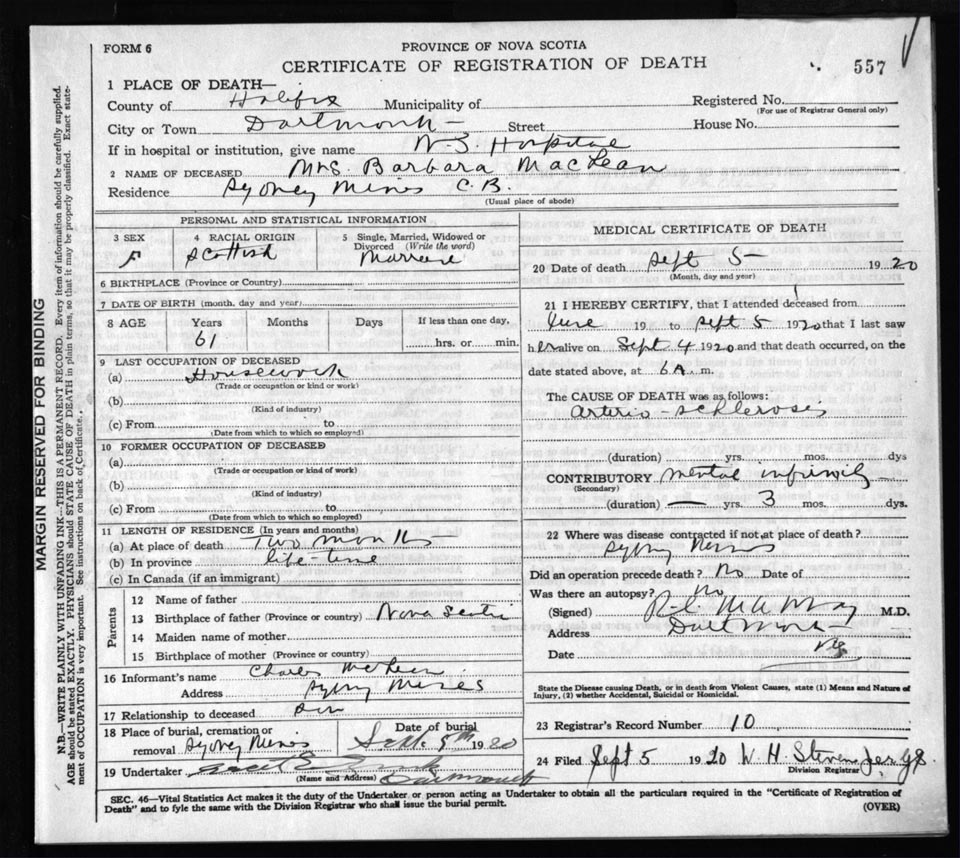 FORM 6
PROVINCE OF NOVA SCOTIA
CERTIFICATE OF REGISTRATION OF DEATH
557
1 PLACE OF DEATH—
County of Halifax Municipality of Registered No.
(For use of Registrar General only)
City or Town Dartmouth — Street House No.
If in hospital or institution, give name N.S. Hospital
2 NAME OF DECEASED Mrs. Barbara MacLean
Residence Sydney Mines C.B.
(Usual place of abode)
PERSONAL AND STATISTICAL INFORMATION
3 SEX F
4 RACIAL ORIGIN Scottish
5 Single, Married, Widowed or Divorced (Write the word)
6 BIRTHPLACE (Province or Country)
7 DATE OF BIRTH (month, day and year)
8 AGE Years Months Days If less than one day,
61 hrs. or min.
9 LAST OCCUPATION OF DECEASED
(a) Housework
(Trade or occupation or kind of work)
(b)
(Kind of industry)
(c) From to
(Date from which to which so employed)
10 FORMER OCCUPATION OF DECEASED
(a)
(Trade or occupation or kind of work)
(b)
(Kind of industry)
(c) From to
(Date from which to which so employed)
11 LENGTH OF RESIDENCE (In years and months)
(a) At place of death Two months
(b) In province life-time
(c) In Canada (if an immigrant)
Parents
12 Name of father
13 Birthplace of father (Province or country) Nova Scotia
14 Maiden name of mother
15 Birthplace of mother (Province or country)
16 Informant's name Charles McLean
Address Sydney Mines
17 Relationship to deceased Son
18 Place of burial, cremation or removal Sydney Mines
Date of burial Sept. 1920
19 Undertaker Dartmouth
(Name and Address)
MEDICAL CERTIFICATE OF DEATH
20 Date of death Sept 5 1920
(Month, day and year)
21 I HEREBY CERTIFY, that I attended deceased from
June 19 to Sept 5 1920 that I last saw
her alive on Sept 4 1920 and that death occurred, on the
date stated above, at 6 A. m.
The CAUSE OF DEATH was as follows:
Arterio-schleroses
(duration) yrs. mos. dys
CONTRIBUTORY mental infirmity
(Secondary)
(duration) — yrs. 3 mos. dys.
22 Where was disease contracted if not at place of death?
Sydney Mines
Did an operation precede death? No Date of
Was there an autopsy? No
(Signed) M.D.
Address Dartmouth
Date
State the Disease causing Death, or in death from Violent Causes, state (1) Means and Nature of
Injury, (2) whether Accidental, Suicidal or Homicidal.
23 Registrar's Record Number 10
24 Filed Sept 5 1920 W. H.
Division Registrar
SEC. 46—Vital Statistics Act makes it the duty of the Undertaker or person acting as Undertaker to obtain all the particulars required in the "Certificate of Registration of
Death" and to fyle the same with the Division Registrar who shall issue the burial permit.
(OVER)
MARGIN RESERVED FOR BINDING
N.B.—WRITE PLAINLY WITH UNFADING INK—THIS IS A PERMANENT RECORD. Every item of information should be carefully supplied.
AGE should be stated EXACTLY. PHYSICIANS should STATE CAUSE OF DEATH in plain terms, so that it may be properly classified. Exact statement of OCCUPATION is very important. See instructions on back of Certificate.